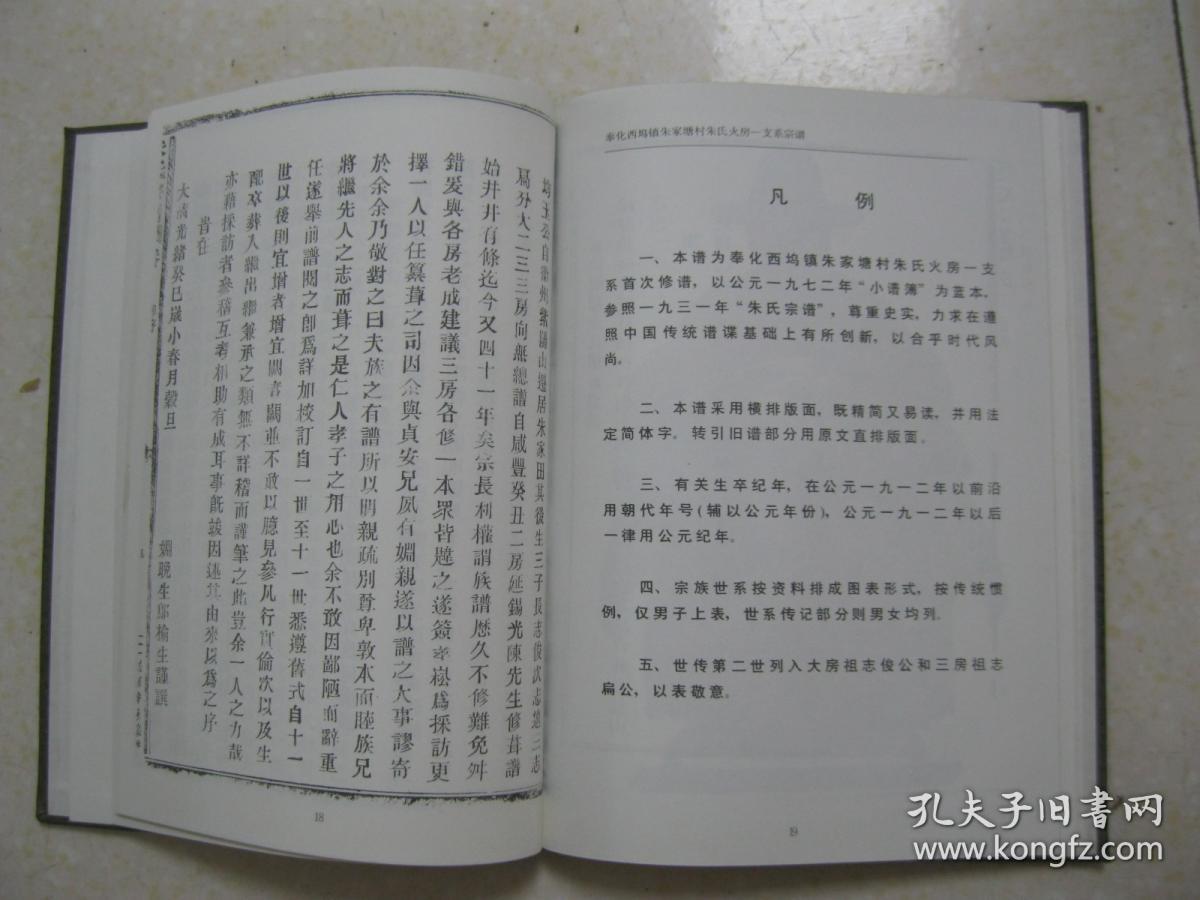 公自
山遷居朱家田其後生三子長志俊次志
為分大二三三房向無總譜自咸豐癸丑二房延錫光陳先生修葺譜
始井井有條迄今又四十一年矣宗長利權謂族譜歷久不修難免舛
錯爰與各房老成建議三房各修一本眾皆韙之遂簽
為採訪更
擇一人以任纂葺之司因余與貞安兄夙有姻親遂以譜之大事謬寄
於余余乃敬對之曰夫族之有譜所以明親疏別尊卑敦本而睦族兄
將繼先人之志而葺之是仁人孝子之用心也余不敢因鄙陋而辭重
任遂舉前譜閱之卽爲詳加校訂自一世至十一世悉遵舊式自十一
世以後則宜增者增宜闕者闕並不敢以臆見參凡行實倫次以及生
配卒葬入繼出繼兼承之類無不詳稽而謹筆之此豈余一人之力哉
亦藉採訪者參稽互考相助有成耳事旣竣因述其由來以爲之序
旹在
大淸光緒癸巳歲小春月穀旦
姻晚生鄔榆生謹譔
18
奉化西坞镇朱家塘村朱氏火房一支系宗谱
凡 例
一、本谱为奉化西坞镇朱家塘村朱氏火房一支
系首次修谱，以公元一九七二年“小谱簿”为蓝本，
参照一九三一年“朱氏宗谱”，尊重史实，力求在遵
照中国传统谱谍基础上有所创新，以合乎时代风
尚。
二、本谱采用横排版面，既精简又易读，并用法
定简体字。转引旧谱部分用原文直排版面。
三、有关生卒纪年，在公元一九一二年以前沿
用朝代年号（辅以公元年份），公元一九一二年以后
一律用公元纪年。
四、宗族世系按资料排成图表形式，按传统惯
例，仅男子上表，世系传记部分则男女均列。
五、世传第二世列入大房祖志俊公和三房祖志
扁公，以表敬意。
19
孔夫子旧书网
www.kongfz.com